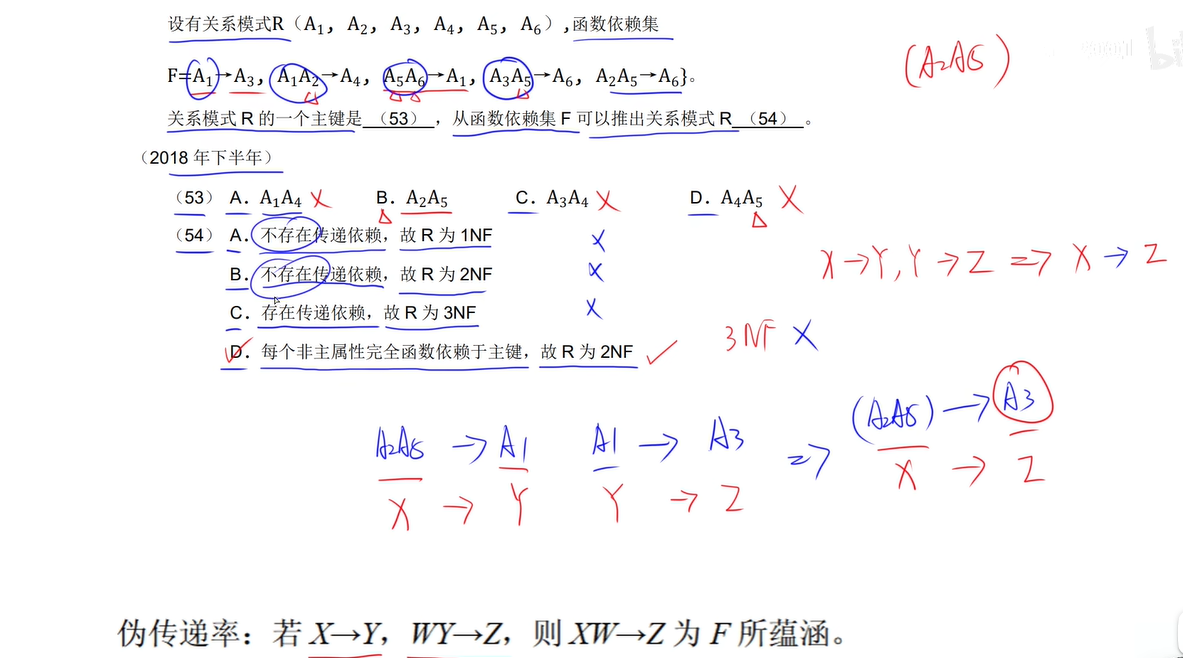 设有关系模式R（A₁, A₂, A₃, A₄, A₅, A₆）,函数依赖集
(A₂A₅)
F={A₁→A₃, A₁A₂→A₄, A₅A₆→A₁, A₃A₅→A₆, A₂A₅→A₆}。
关系模式 R 的一个主键是 （53） ，从函数依赖集 F 可以推出关系模式 R （54） 。
（2018 年下半年）
（53） A. A₁A₄ X B. A₂A₅ C. A₃A₄ X D. A₄A₅ X
（54） A. 不存在传递依赖，故 R 为 1NF X
X→Y, Y→Z => X→Z
B. 不存在传递依赖，故 R 为 2NF X
C. 存在传递依赖，故 R 为 3NF X
3NF X
D. 每个非主属性完全函数依赖于主键，故 R 为 2NF ✓
A₂A₅ → A1 A1 → A3 => (A₂A₅) → A3
X → Y Y → Z X → Z
伪传递率：若 X→Y，WY→Z，则 XW→Z 为 F 所蕴涵。